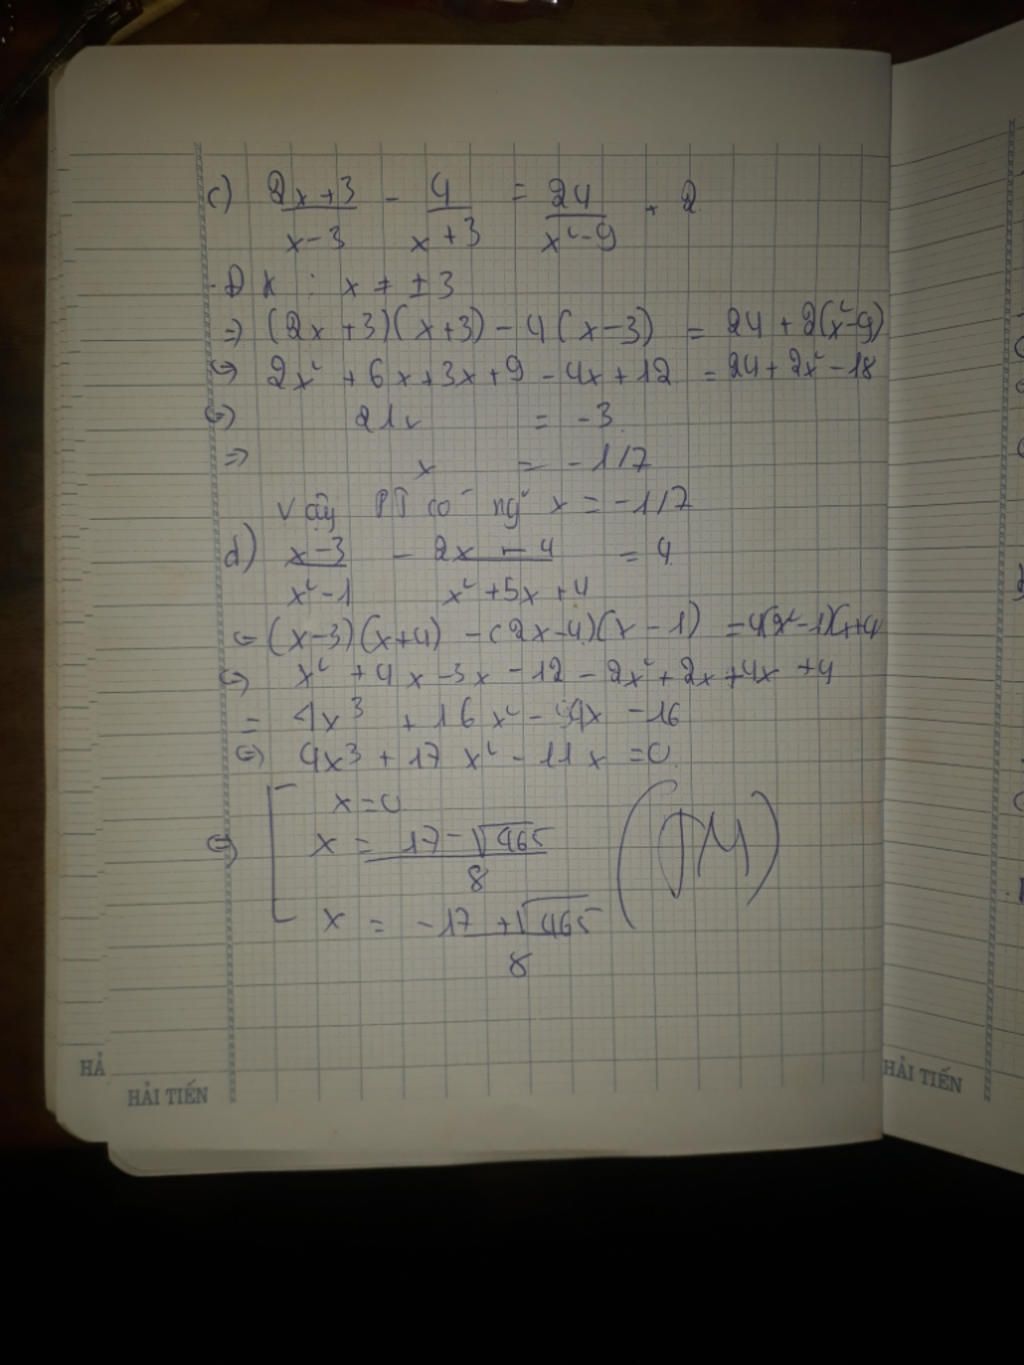 c) \frac{2x+3}{x-3} - \frac{4}{x+3} = \frac{24}{x²-9} + 2
ĐK : x ≠ ±3
⇒ (2x+3)(x+3) - 4(x-3) = 24 + 2(x²-9)
⇔ 2x² + 6x + 3x + 9 - 4x + 12 = 24 + 2x² - 18
⇔ 21x = -3
⇒ x = -1/7
Vậy PT có ng° x = -1/7
d) \frac{x-3}{x²-1} - \frac{2x-4}{x²+5x+4} = 4
⇔ (x-3)(x+4) - (2x-4)(x-1) = 4(x²-1)(x+4
⇔ x² + 4x - 3x - 12 - 2x² + 2x + 4x + 4
= 4x³ + 16x² - 4x - 16
⇔ 4x³ + 17x² - 11x = 0
x = 0
⇔ x = \frac{17-\sqrt{465}}{8} (TM)
x = \frac{-17+\sqrt{465}}{8}
HẢ
HẢI TIẾN
HẢI TIẾN